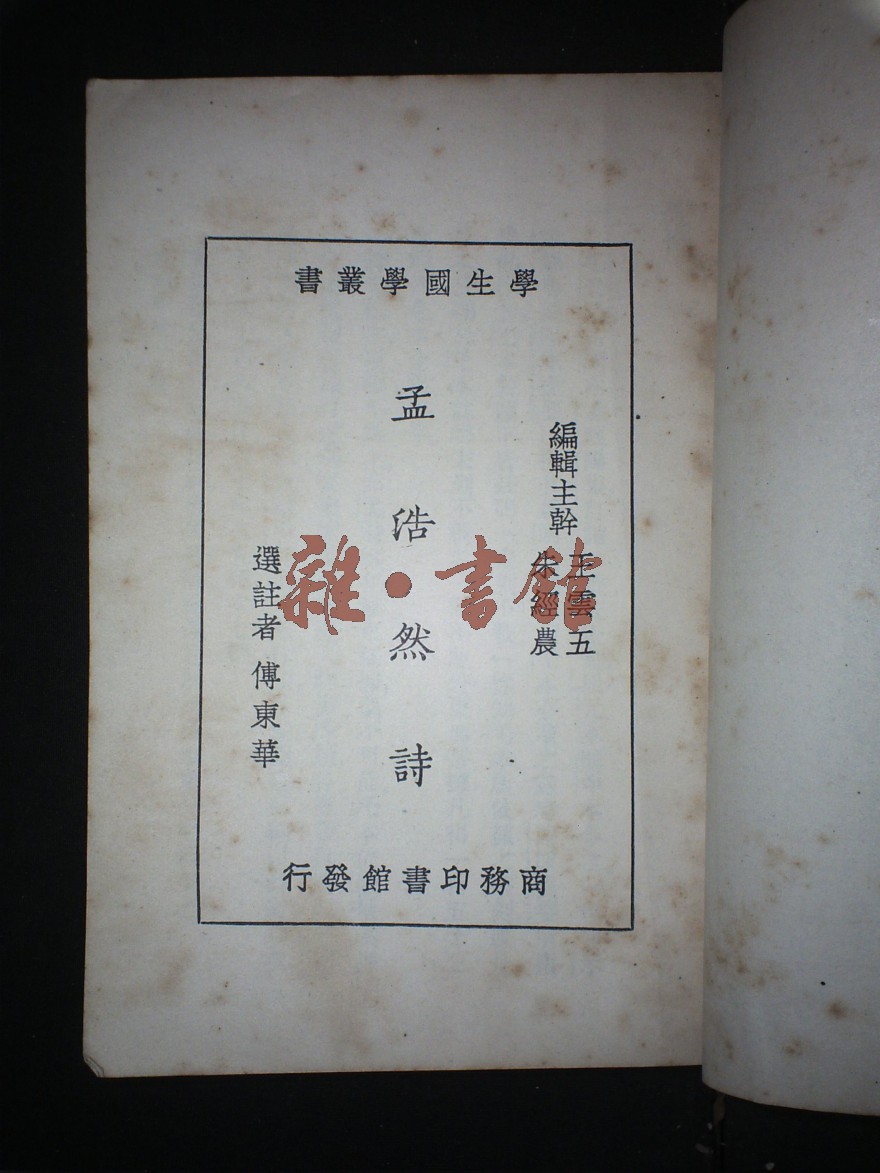 學生國學叢書
編輯主幹
王雲五
朱經農
孟浩然詩
選註者 傅東華
商務印書館發行
雜·書館